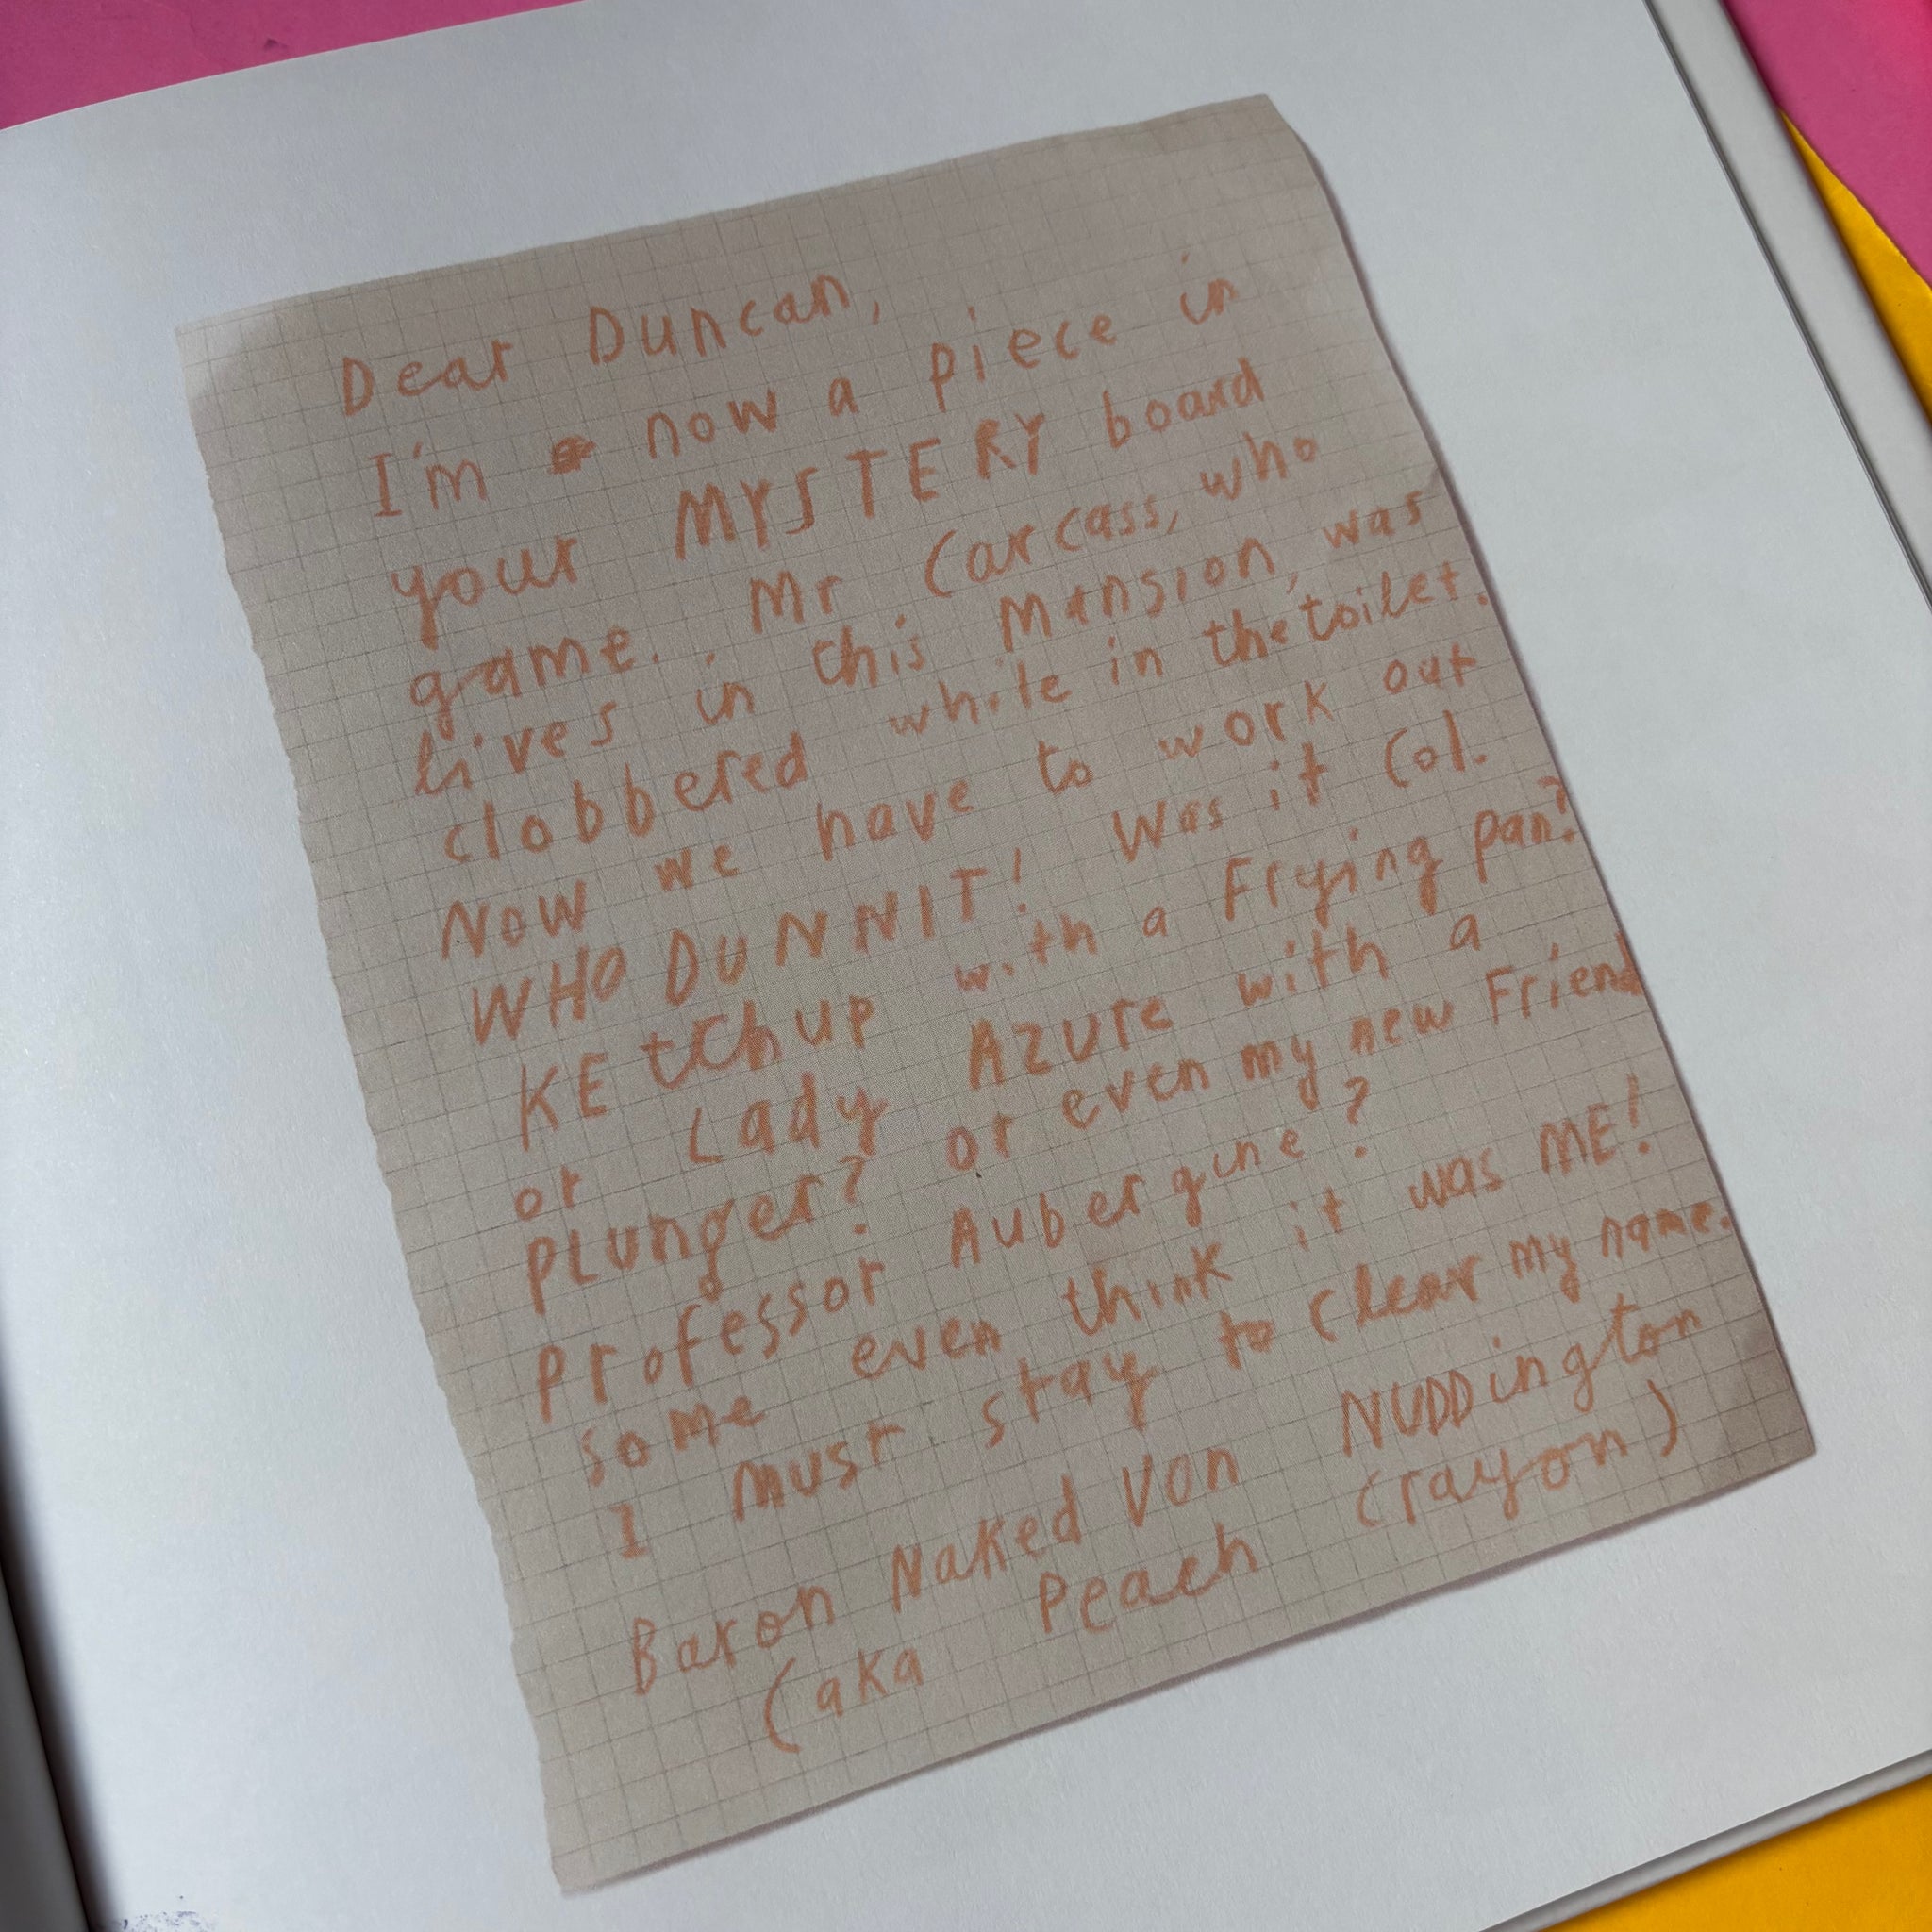 Dear Duncan,
I'm now a piece in
your MYSTERY board
game. Mr Carcass, who
lives in this Mansion, was
clobbered while in the toilet.
Now we have to work out
WHO DUNNIT! Was it Col.
KEtchup with a Frying pan?
or Lady Azure with a
plunger? or even my new Friend
professor Aubergine?
some even think it was ME!
I must stay to clear my name.
Baron Naked Von NUDDington
(aka Peach Crayon)